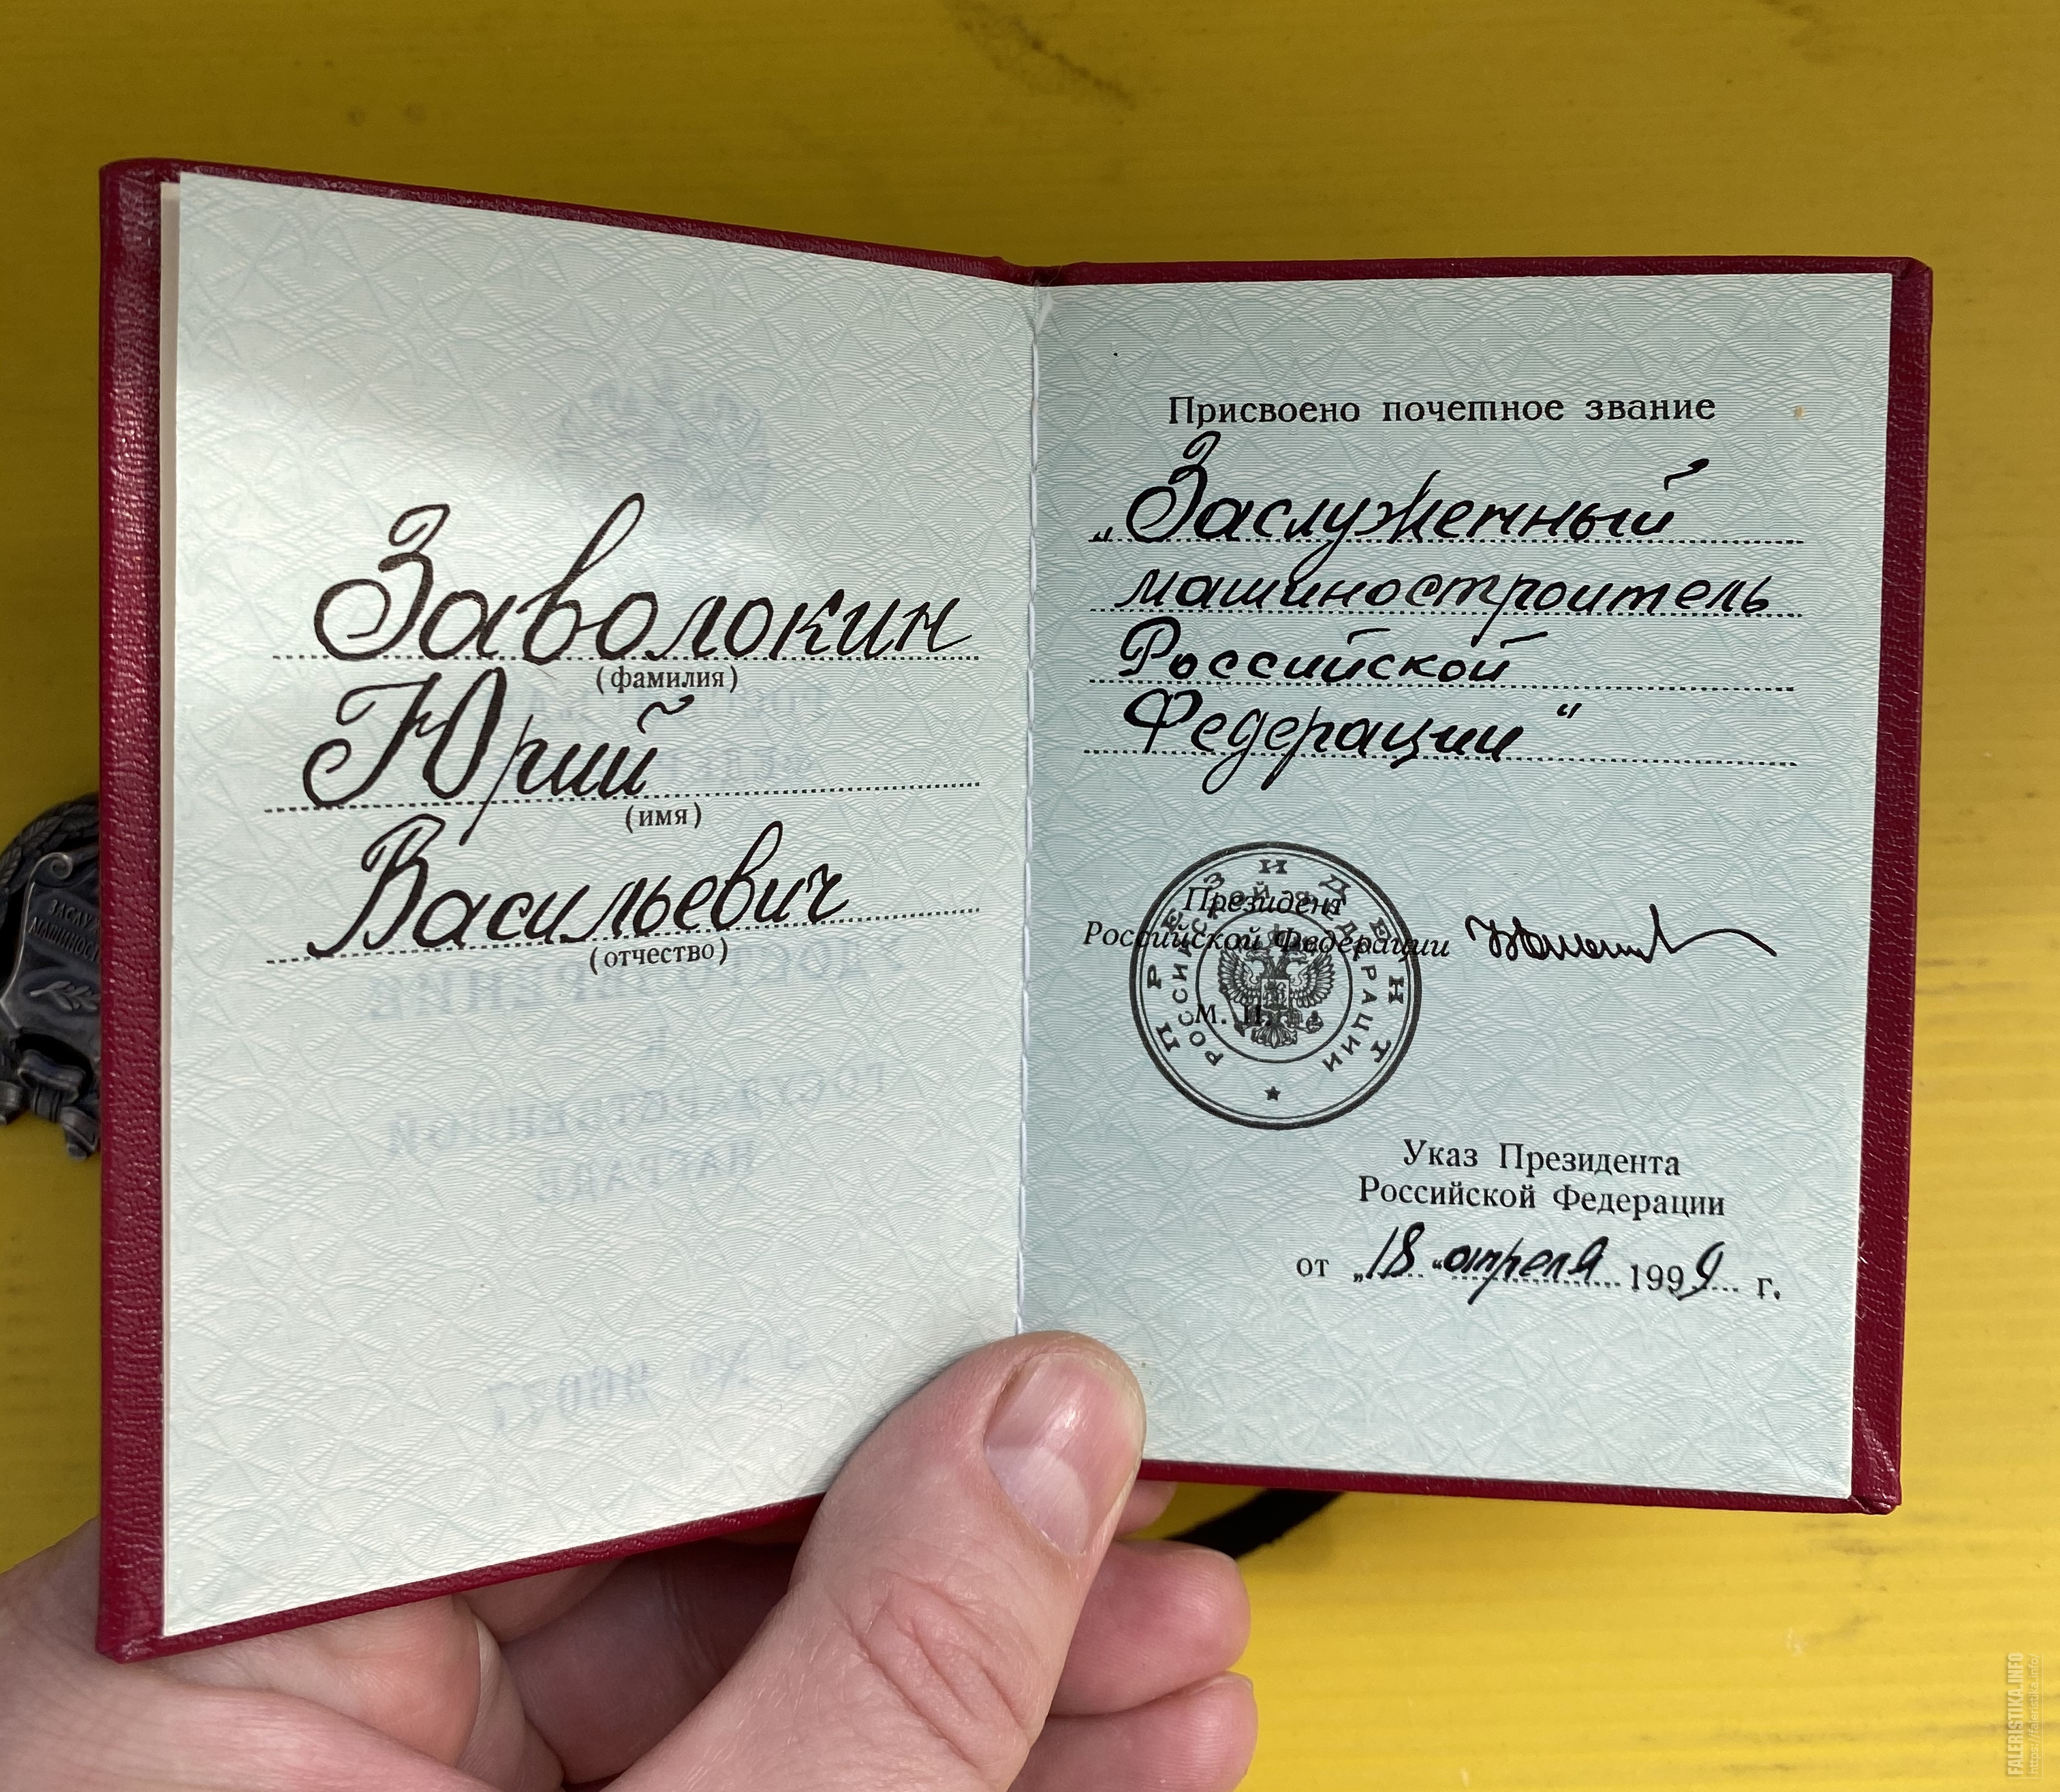 Заволокин
(фамилия)
Юрий
(имя)
Васильевич
(отчество)
Присвоено почетное звание
„Заслуженный
машиностроитель
Российской
Федерации“
Президент
Российской Федерации
М. П.
ПРЕЗИДЕНТ
РОССИЙСКОЙ ФЕДЕРАЦИИ
Указ Президента
Российской Федерации
от „18“ апреля 1999 г.
FALERISTIKA.INFO
https://faleristika.info/